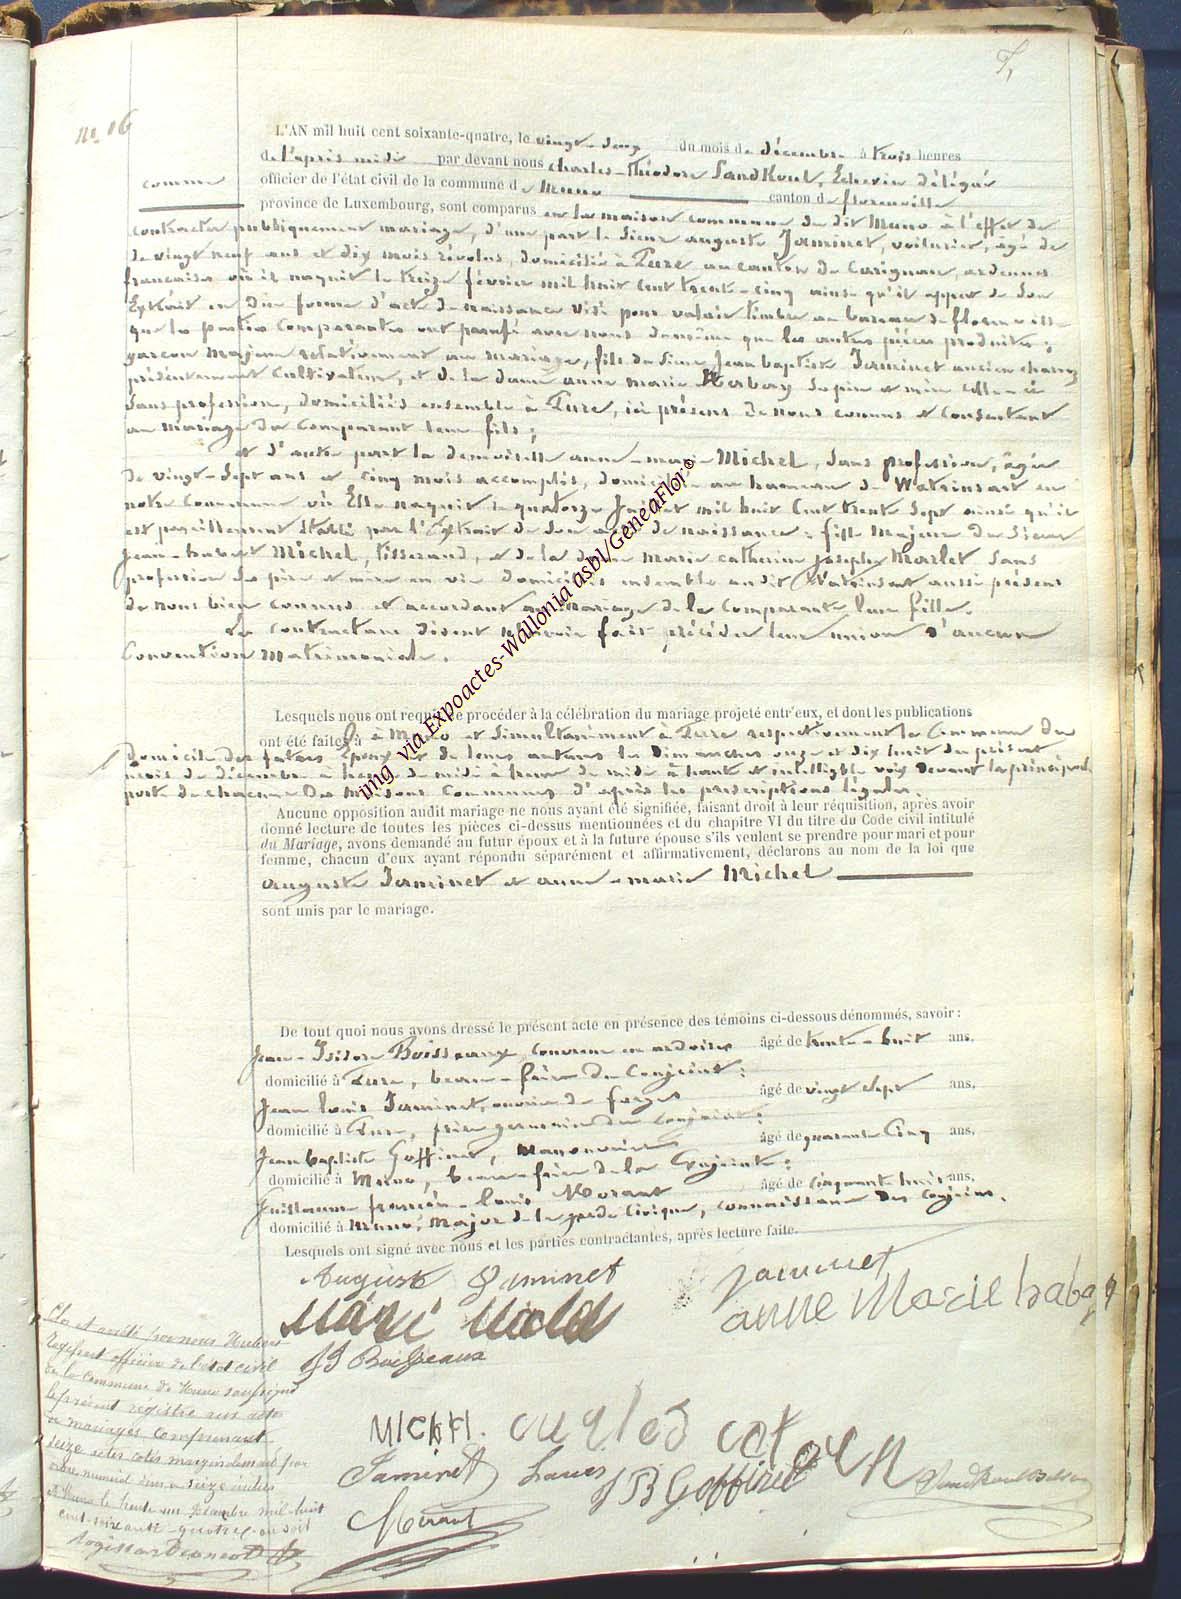 n° 16
L'AN mil huit cent soixante-quatre, le vingt-deux du mois de décembre à trois heures
de l'après midi par devant nous Charles-Théodore Sandkoul, Echevin délégué
comme officier de l'état civil de la commune de Muno canton de florenville
province de Luxembourg, sont comparus en la maison commune du dit Muno à l'effet de
contracter publiquement mariage, d'une part le Sieur auguste Jaminet, voiturier, âgé de
de vingt neuf ans et dix mois révolus, domicilié à Pure au canton de Carignan, ardennes
françaises où il naquit le treize février mil huit cent trente-cinq ainsi qu'il appert de son
Extrait en due forme d'acte de naissance visé pour valoir timbre au bureau de florenville
que les parties comparantes ont paraphé avec nous de même que les autres pièces produites ;
garçon majeur relativement au mariage, fils du Sieur Jean baptiste Jaminet ancien
présentement Cultivateur, et de la dame anne marie ses père et mère celle-ci
sans profession, domiciliés ensemble à Pure, ici présens de nous connus et consentant
au mariage du comparant leur fils ;
et d'autre part la demoiselle anne-marie Michel, sans profession, âgée
de vingt-sept ans et cinq mois accomplis, domiciliée au hameau de Watrinsart en
notre commune où Elle naquit le quatorze Juillet mil huit Cent trente sept ainsi qu'il
est pareillement établi par l'Extrait de son acte de naissance : fille majeure du Sieur
Jean-hubert Michel, tisserand, et de la dame marie catherine josephe Marlet sans
profession ses père et mère en vie domiciliés ensemble audit Watrinsart aussi présens
de nous bien connus et accordant au mariage de la comparante leur fille.
Les contractans disent n'avoir fait précéder leur union d'aucune
Convention matrimoniale.
Lesquels nous ont requis de procéder à la célébration du mariage projeté entr'eux, et dont les publications
ont été faites à à Muno et simultanément à Pure respectivement les Communes du
Domicile des futurs Epoux et de leurs auteurs les dimanches onze et dix huit du présent
mois de décembre à heure de midi à heure de midi à haute et intelligible voix devant la principale
porte de chacune des Maisons Communes d'après les prescriptions légales.
Aucune opposition audit mariage ne nous ayant été signifiée, faisant droit à leur réquisition, après avoir
donné lecture de toutes les pièces ci-dessus mentionnées et du chapitre VI du titre du Code civil intitulé
du Mariage, avons demandé au futur époux et à la future épouse s'ils veulent se prendre pour mari et pour
femme, chacun d'eux ayant répondu séparément et affirmativement, déclarons au nom de la loi que
auguste Jaminet et anne-marie Michel
sont unis par le mariage.
De tout quoi nous avons dressé le présent acte en présence des témoins ci-dessous dénommés, savoir :
Jean-Isidore Boisseaux, couvreur en ardoises âgé de trente-huit ans,
domicilié à Pure, beau-frère du Conjoint ;
Jean louis Jaminet, ouvrier de forges âgé de vingt sept ans,
domicilié à Pure, frère germain du conjoint ;
Jean baptiste Goffinet, manouvrier âgé de quarante cinq ans,
domicilié à Muno, beau-frère de la Conjointe ;
Guillaume françois-louis Morant âgé de cinquante huit ans,
domicilié à Muno, Major de la garde Civique, connaissance des conjoins.
Lesquels ont signé avec nous et les parties contractantes, après lecture faite.
Auguste Jaminet Jaminet
Marie Michel anne Marie
J J Boisseaux
MICHEL
Jaminet Louis J B Goffinet
Morant
Clos et arrêté par nous Hubert
officier de l'état civil
de la commune de Muno soussigné
le présent régistre aux actes
de mariages comprenant
seize actes cotés marginalement par
ordre numéral d'un à seize inclus
à Muno le trente un Décembre mil-huit
cent-soixante-quatre au soir
img via Expoactes-Wallonia asbl/GeneaFlor©